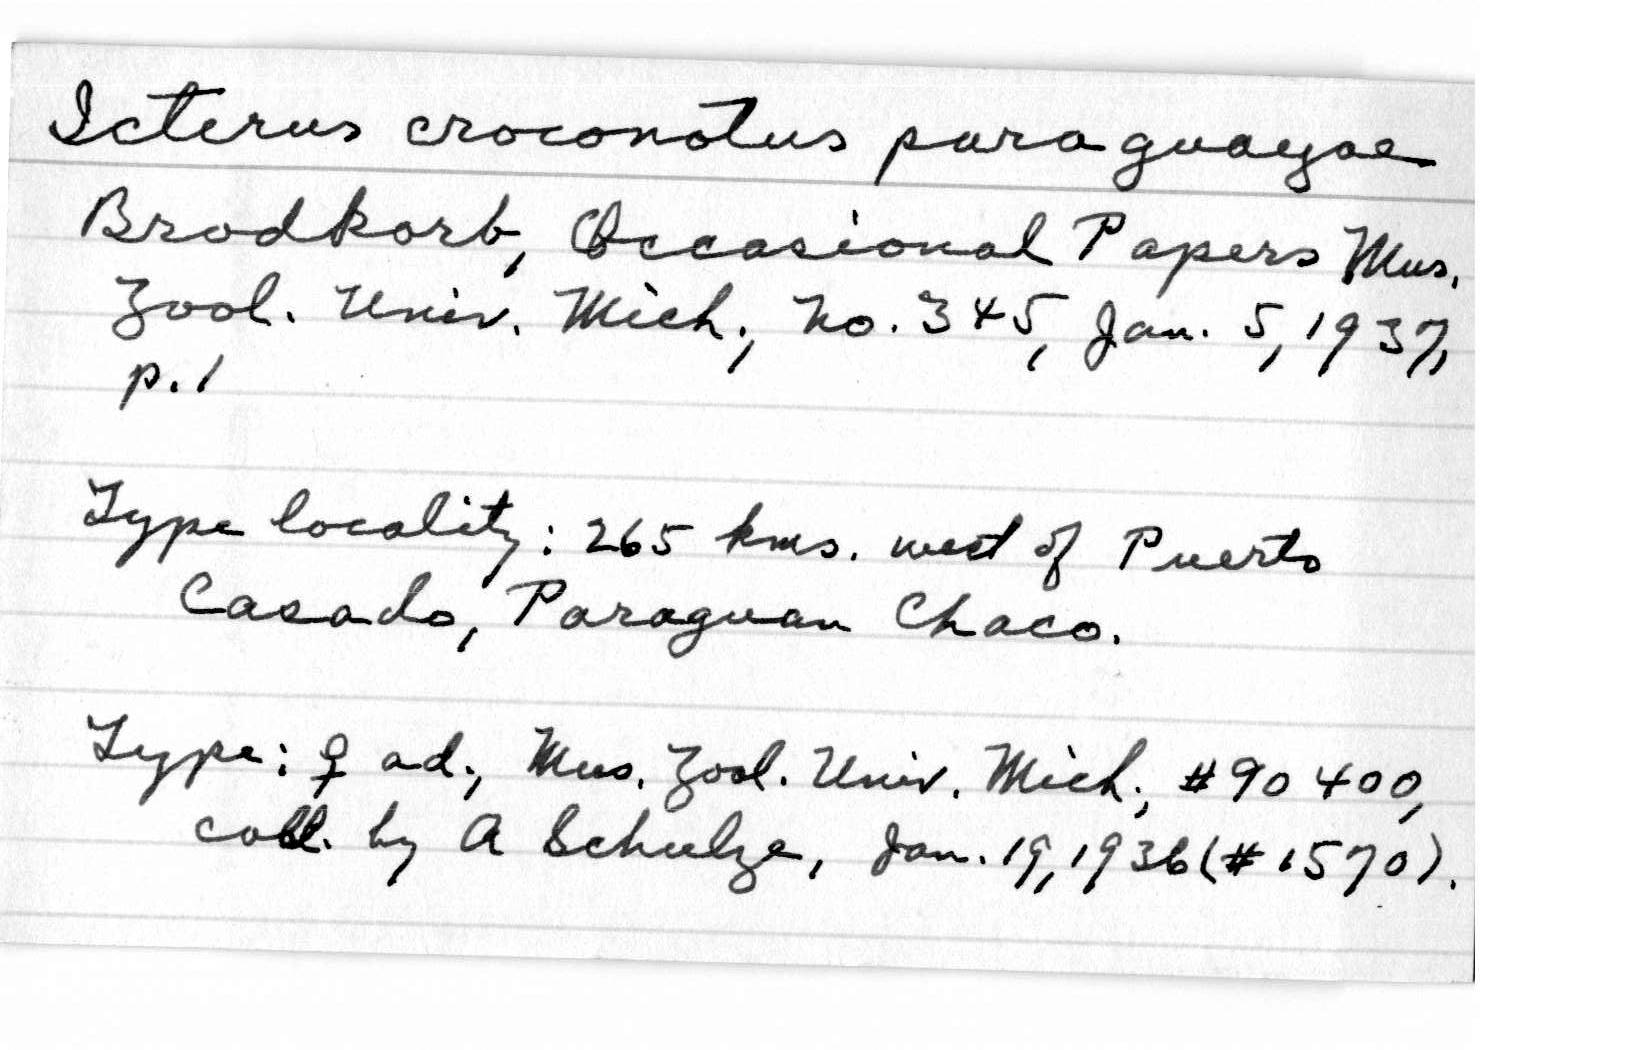 Icterus croconotus paraguayae
Brodkorb, Occasional Papers Mus.
Zool. Univ. Mich., No. 345, Jan. 5, 1937,
p. 1
Type locality: 265 kms. west of Puerto
Casado, Paraguan Chaco.
Type: ♀ ad., Mus. Zool. Univ. Mich., #90400,
coll. by A Schulze, Jan. 19, 1936 (#1570).